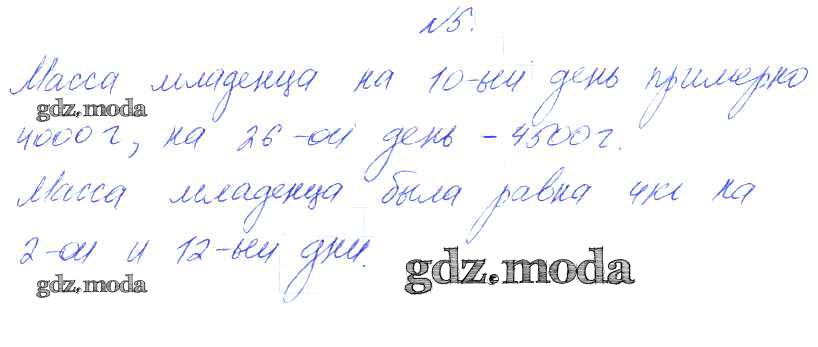 №5.
Масса младенца на 10-ый день примерно
gdz.moda
4000г, на 26-ой день - 4500г.
Масса младенца была равна 4кг на
2-ой и 12-ый дни.
gdz.moda
gdz.moda